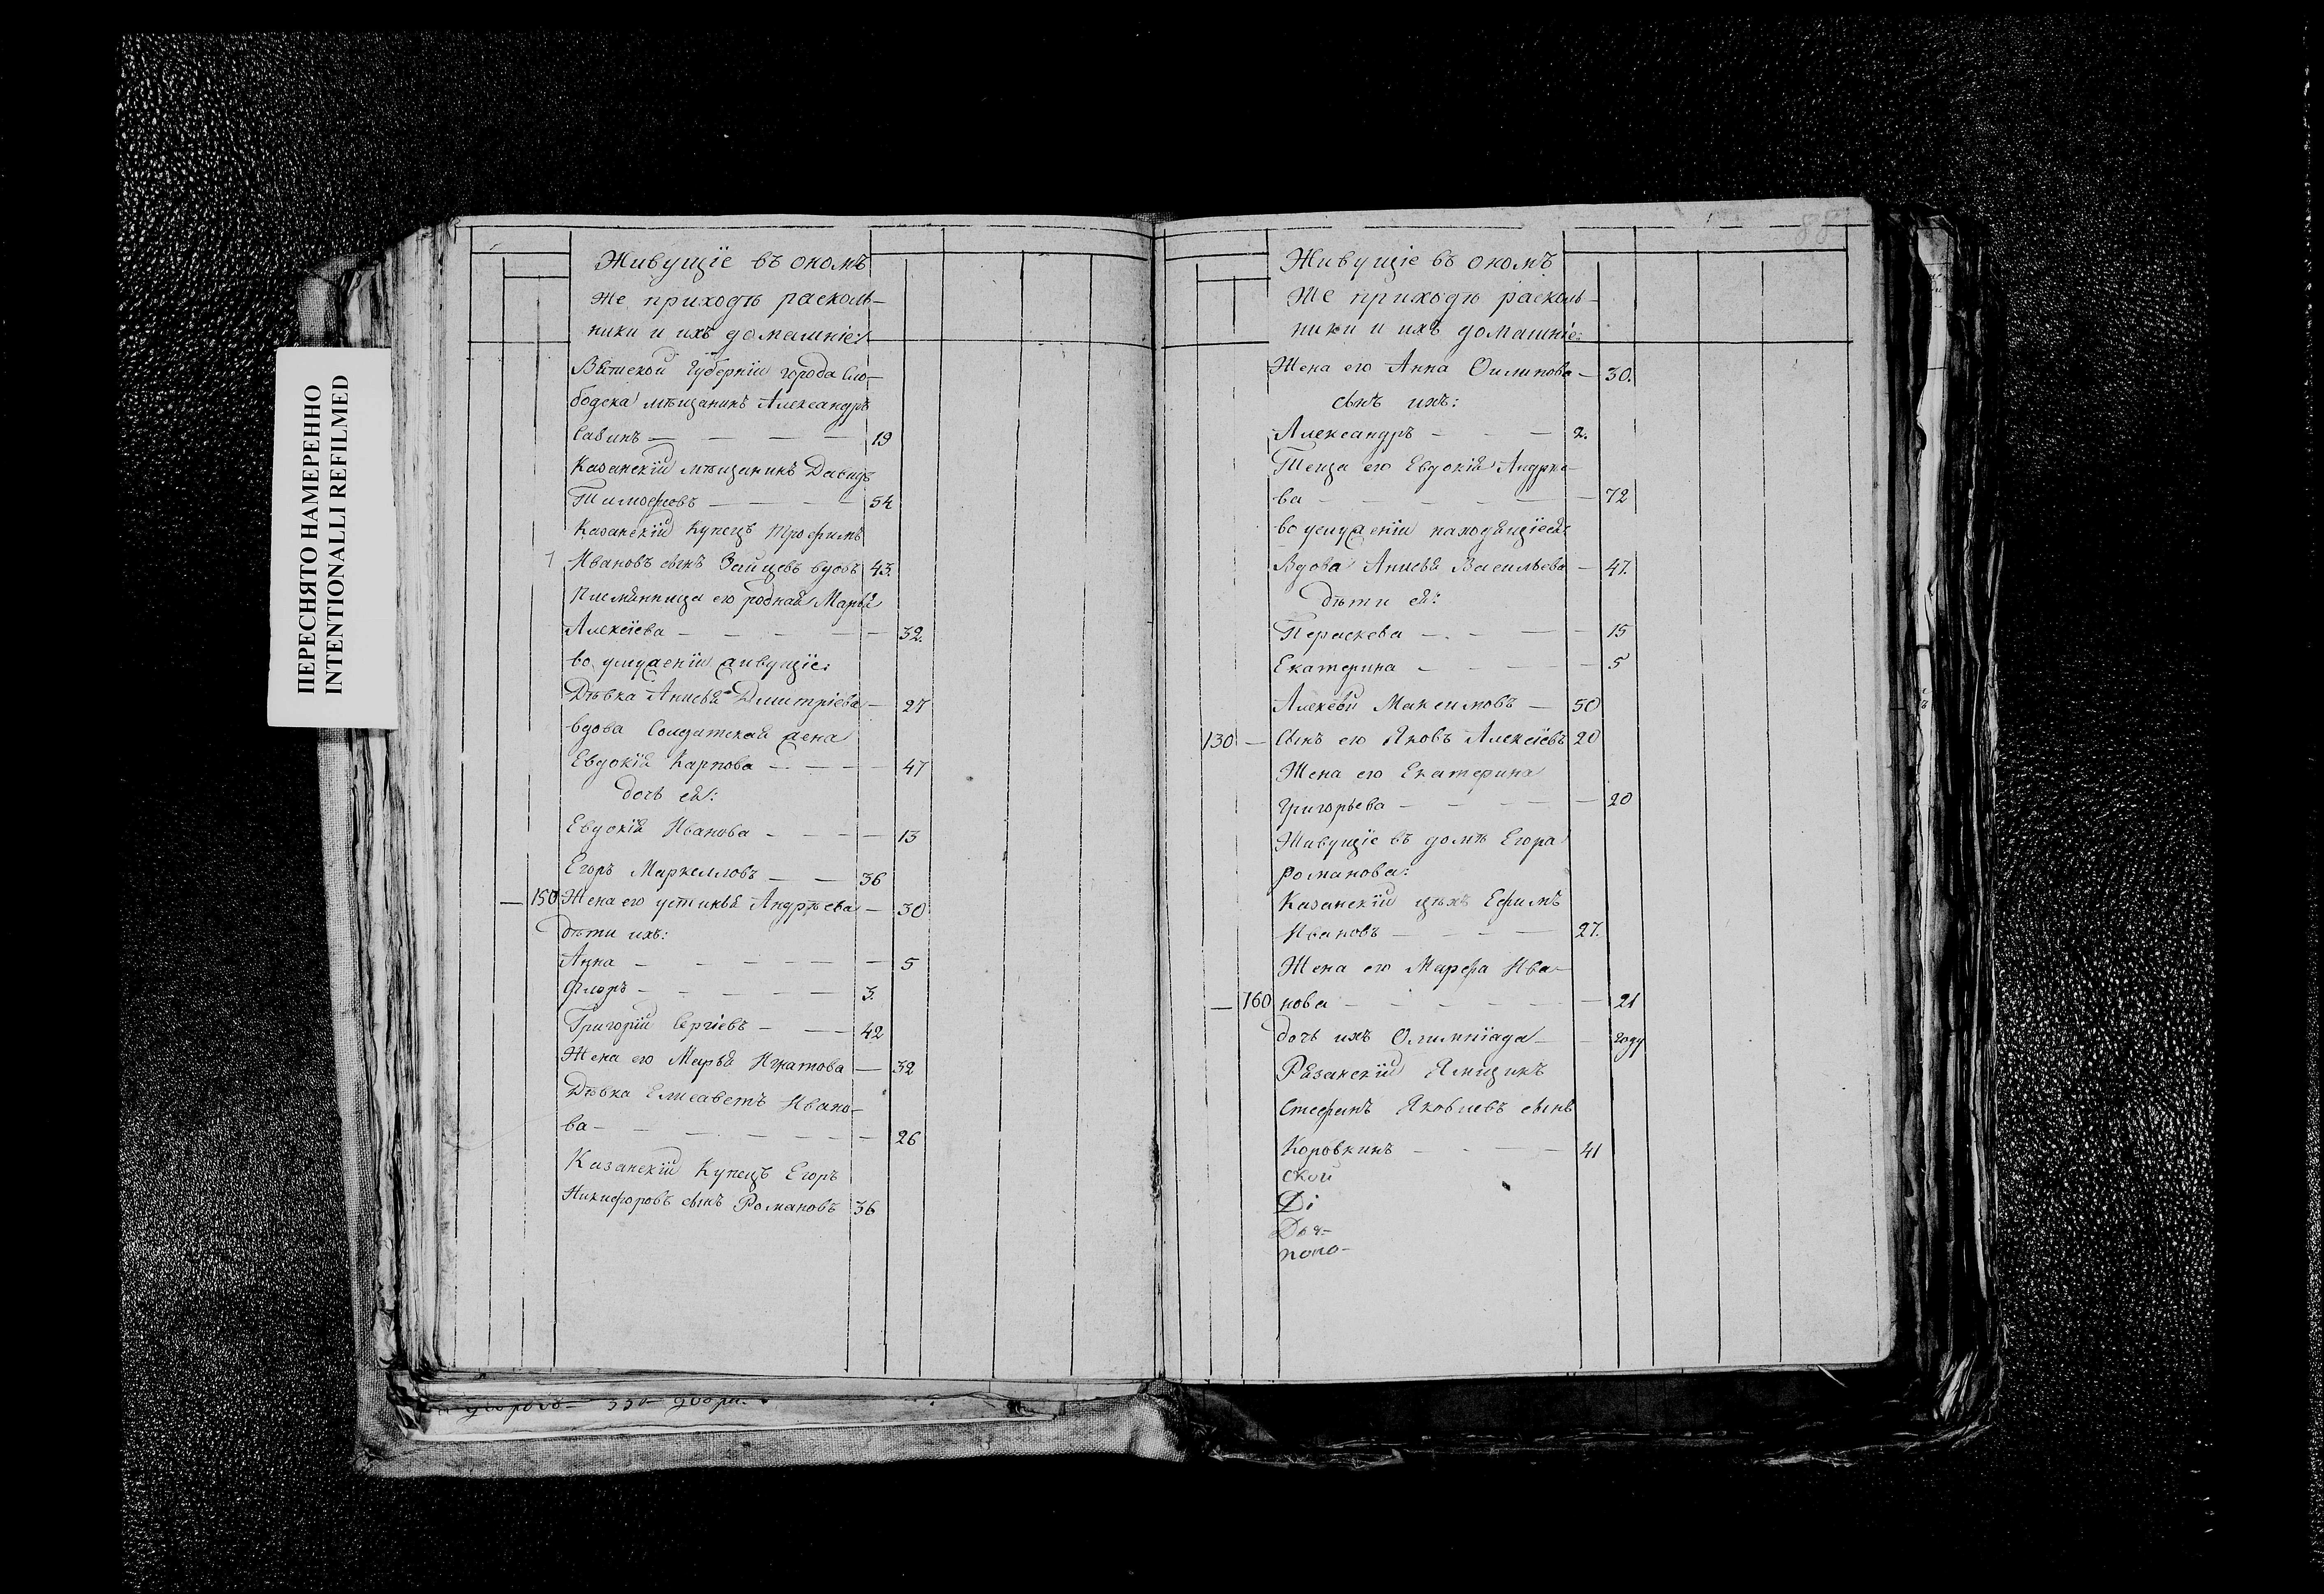 ПЕРЕСНЯТО НАМЕРЕННО
INTENTIONALLI REFILMED
Живущіе въ ономъ
же приходѣ расколь-
ники и ихъ домашніе:
Вятской Губерніи города Сло-
бодска мѣщанинъ Александръ
Савинъ — — — — 19
Казанскій мѣщанинъ Давидъ
Тимофеевъ — — — — 54
Казанскій Купецъ Трофимъ
Ивановъ сынъ Зайцевъ вдовъ 43.
Племянница его родная Марья
Алексіева — — — — — 32.
во услуженіи живущіе:
Дѣвка Анисья Дмитріева — 27
вдова Солдатская жена
Евдокія Карпова — — — — 47
дочь ея:
Евдокія Иванова — — — — 13
Егоръ Маркелловъ — — 36
— 150 Жена его устинья Андрѣева — 30
дѣти ихъ:
Анна — — — — — — 5
Флоръ — — — — — 3.
Григорій Сергіевъ — — — 42
Жена его Марья Игнатова — 32
Дѣвка Елисаветъ Ивано-
ва — — — — — — — 26
Казанскій Купецъ Егоръ
Никифоровъ сынъ Романовъ 36
88
Живущіе въ ономъ
же приходѣ расколь-
ники и ихъ домашніе:
Жена его Анна Филипова — 30.
сынъ ихъ:
Александръ — — — 2.
Теща его Евдокія Андрее-
ва — — — — — — 72
во услуженіи находящіеся:
Вдова Анисья Васильева — 47.
дѣти ея:
Параскева — — — — 15
Екатерина — — — — — 5
Алексѣй Максимовъ — 50
130 — Сынъ его Яковъ Алексіевъ 20
Жена его Екатерина
Григорьева — — — — — 20
Живущіе въ домѣ Егора
Романова:
Казанскій цѣхъ Ефимъ
Ивановъ — — — — 27.
Жена его Марфа Ива-
— 160 нова — — — — — — 21
дочь ихъ Олимпіада — — году
Рязанскій Ямщикъ
Стефанъ Яковлевъ сынъ
Коровкинъ — — — — 41
ской
Ді
Дья-
попо-